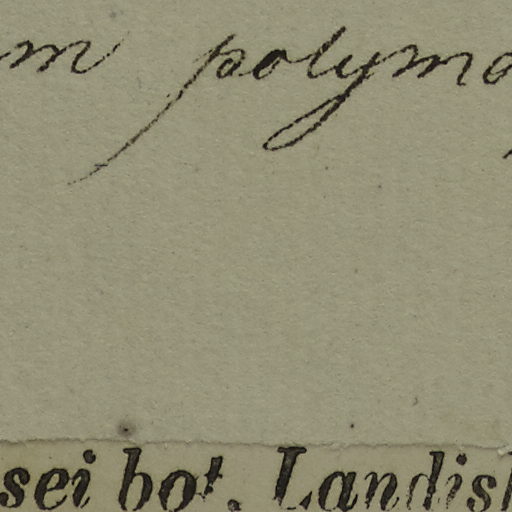 m polymo
sei bot. Landis